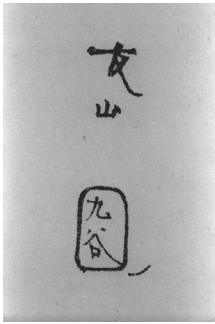 友山
九谷